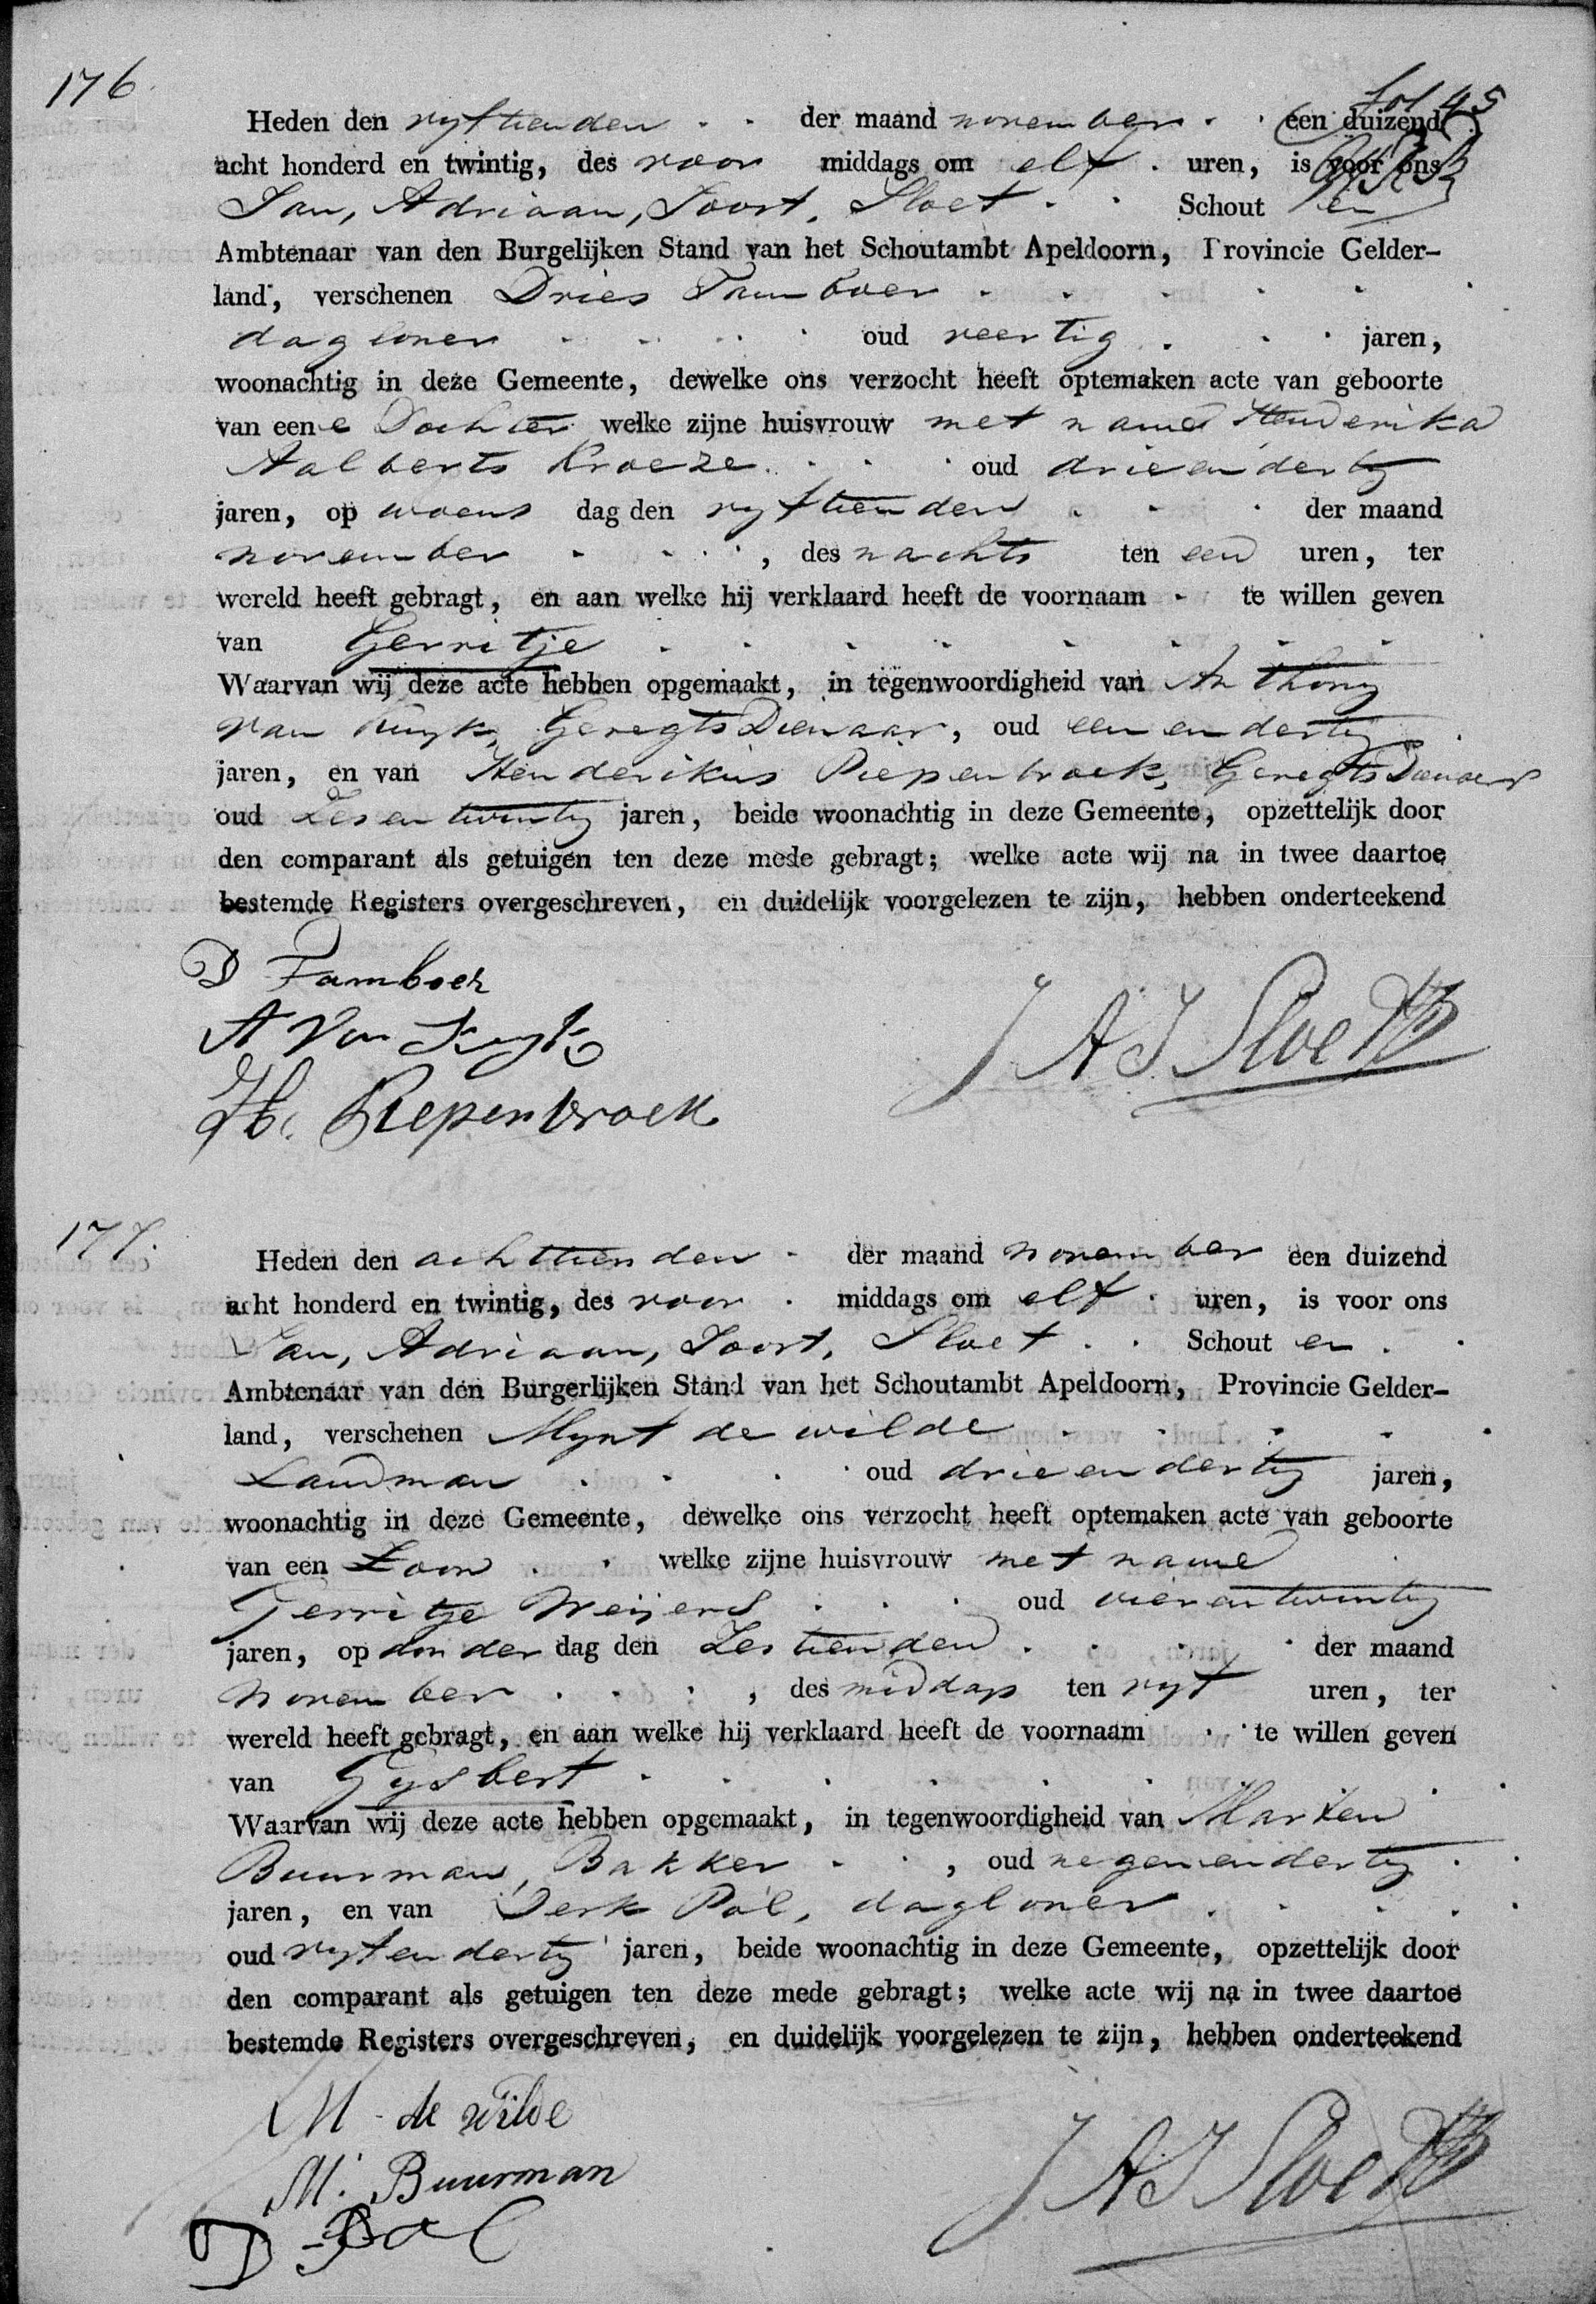 176.
fol 45
Heden den vyftienden . . der maand november . . een duizend
acht honderd en twintig, des voor middags om elf . uren, is voor ons
Jan, Adriaan, Joost, Sloet . . Schout en
Ambtenaar van den Burgelijken Stand van het Schoutambt Apeldoorn, Provincie Gelder-
land, verschenen Dries Tamboer . . . . .
dagloner . . . . oud veertig . . . jaren,
woonachtig in deze Gemeente, dewelke ons verzocht heeft optemaken acte van geboorte
van eene Dochter welke zijne huisvrouw met name Henderika
Aalberts Kroeze . . . . oud drieendertig
jaren, op woens dag den vyftienden . . . der maand
november . . . . , des nachts ten een uren, ter
wereld heeft gebragt, en aan welke hij verklaard heeft de voornaam - te willen geven
van Gerritje . . . . . . .
Waarvan wij deze acte hebben opgemaakt, in tegenwoordigheid van Anthony
van Kuyk, GeregtsDienaar, oud eenendertig .
jaren, en van Henderikus Piepenbroek, GeregtsDienaar
oud Zesentwintig jaren, beide woonachtig in deze Gemeente, opzettelijk door
den comparant als getuigen ten deze mede gebragt; welke acte wij na in twee daartoe
bestemde Registers overgeschreven, en duidelijk voorgelezen te zijn, hebben onderteekend
D Tamboer
A Van Kuyk
J A J Sloet
H. Piepenbroek
177.
Heden den achttienden - der maand november een duizend
acht honderd en twintig, des voor . middags om elf . uren, is voor ons
Jan, Adriaan, Joost, Sloet . . Schout en .
Ambtenaar van den Burgerlijken Stand van het Schoutambt Apeldoorn, Provincie Gelder-
land, verschenen Mynt de wilde . . . . .
Landman . . . . oud drieendertig jaren,
woonachtig in deze Gemeente, dewelke ons verzocht heeft optemaken acte van geboorte
van een Zoon . . welke zijne huisvrouw met name
Gerritje Weijers . . . oud vierentwintig
jaren, op donder dag den Zestienden . . . . der maand
November . . . . , des middags ten vyf uren, ter
wereld heeft gebragt, en aan welke hij verklaard heeft de voornaam . . te willen geven
van Gysbert . . . . . . .
Waarvan wij deze acte hebben opgemaakt, in tegenwoordigheid van Marten
Buurman, Bakker . . , oud negenendertig . .
jaren, en van Derk Pol, dagloner . . . . .
oud vyfendertig jaren, beide woonachtig in deze Gemeente, opzettelijk door
den comparant als getuigen ten deze mede gebragt; welke acte wij na in twee daartoe
bestemde Registers overgeschreven, en duidelijk voorgelezen te zijn, hebben onderteekend
M de wilde
M. Buurman
J A J Sloet
D Pol